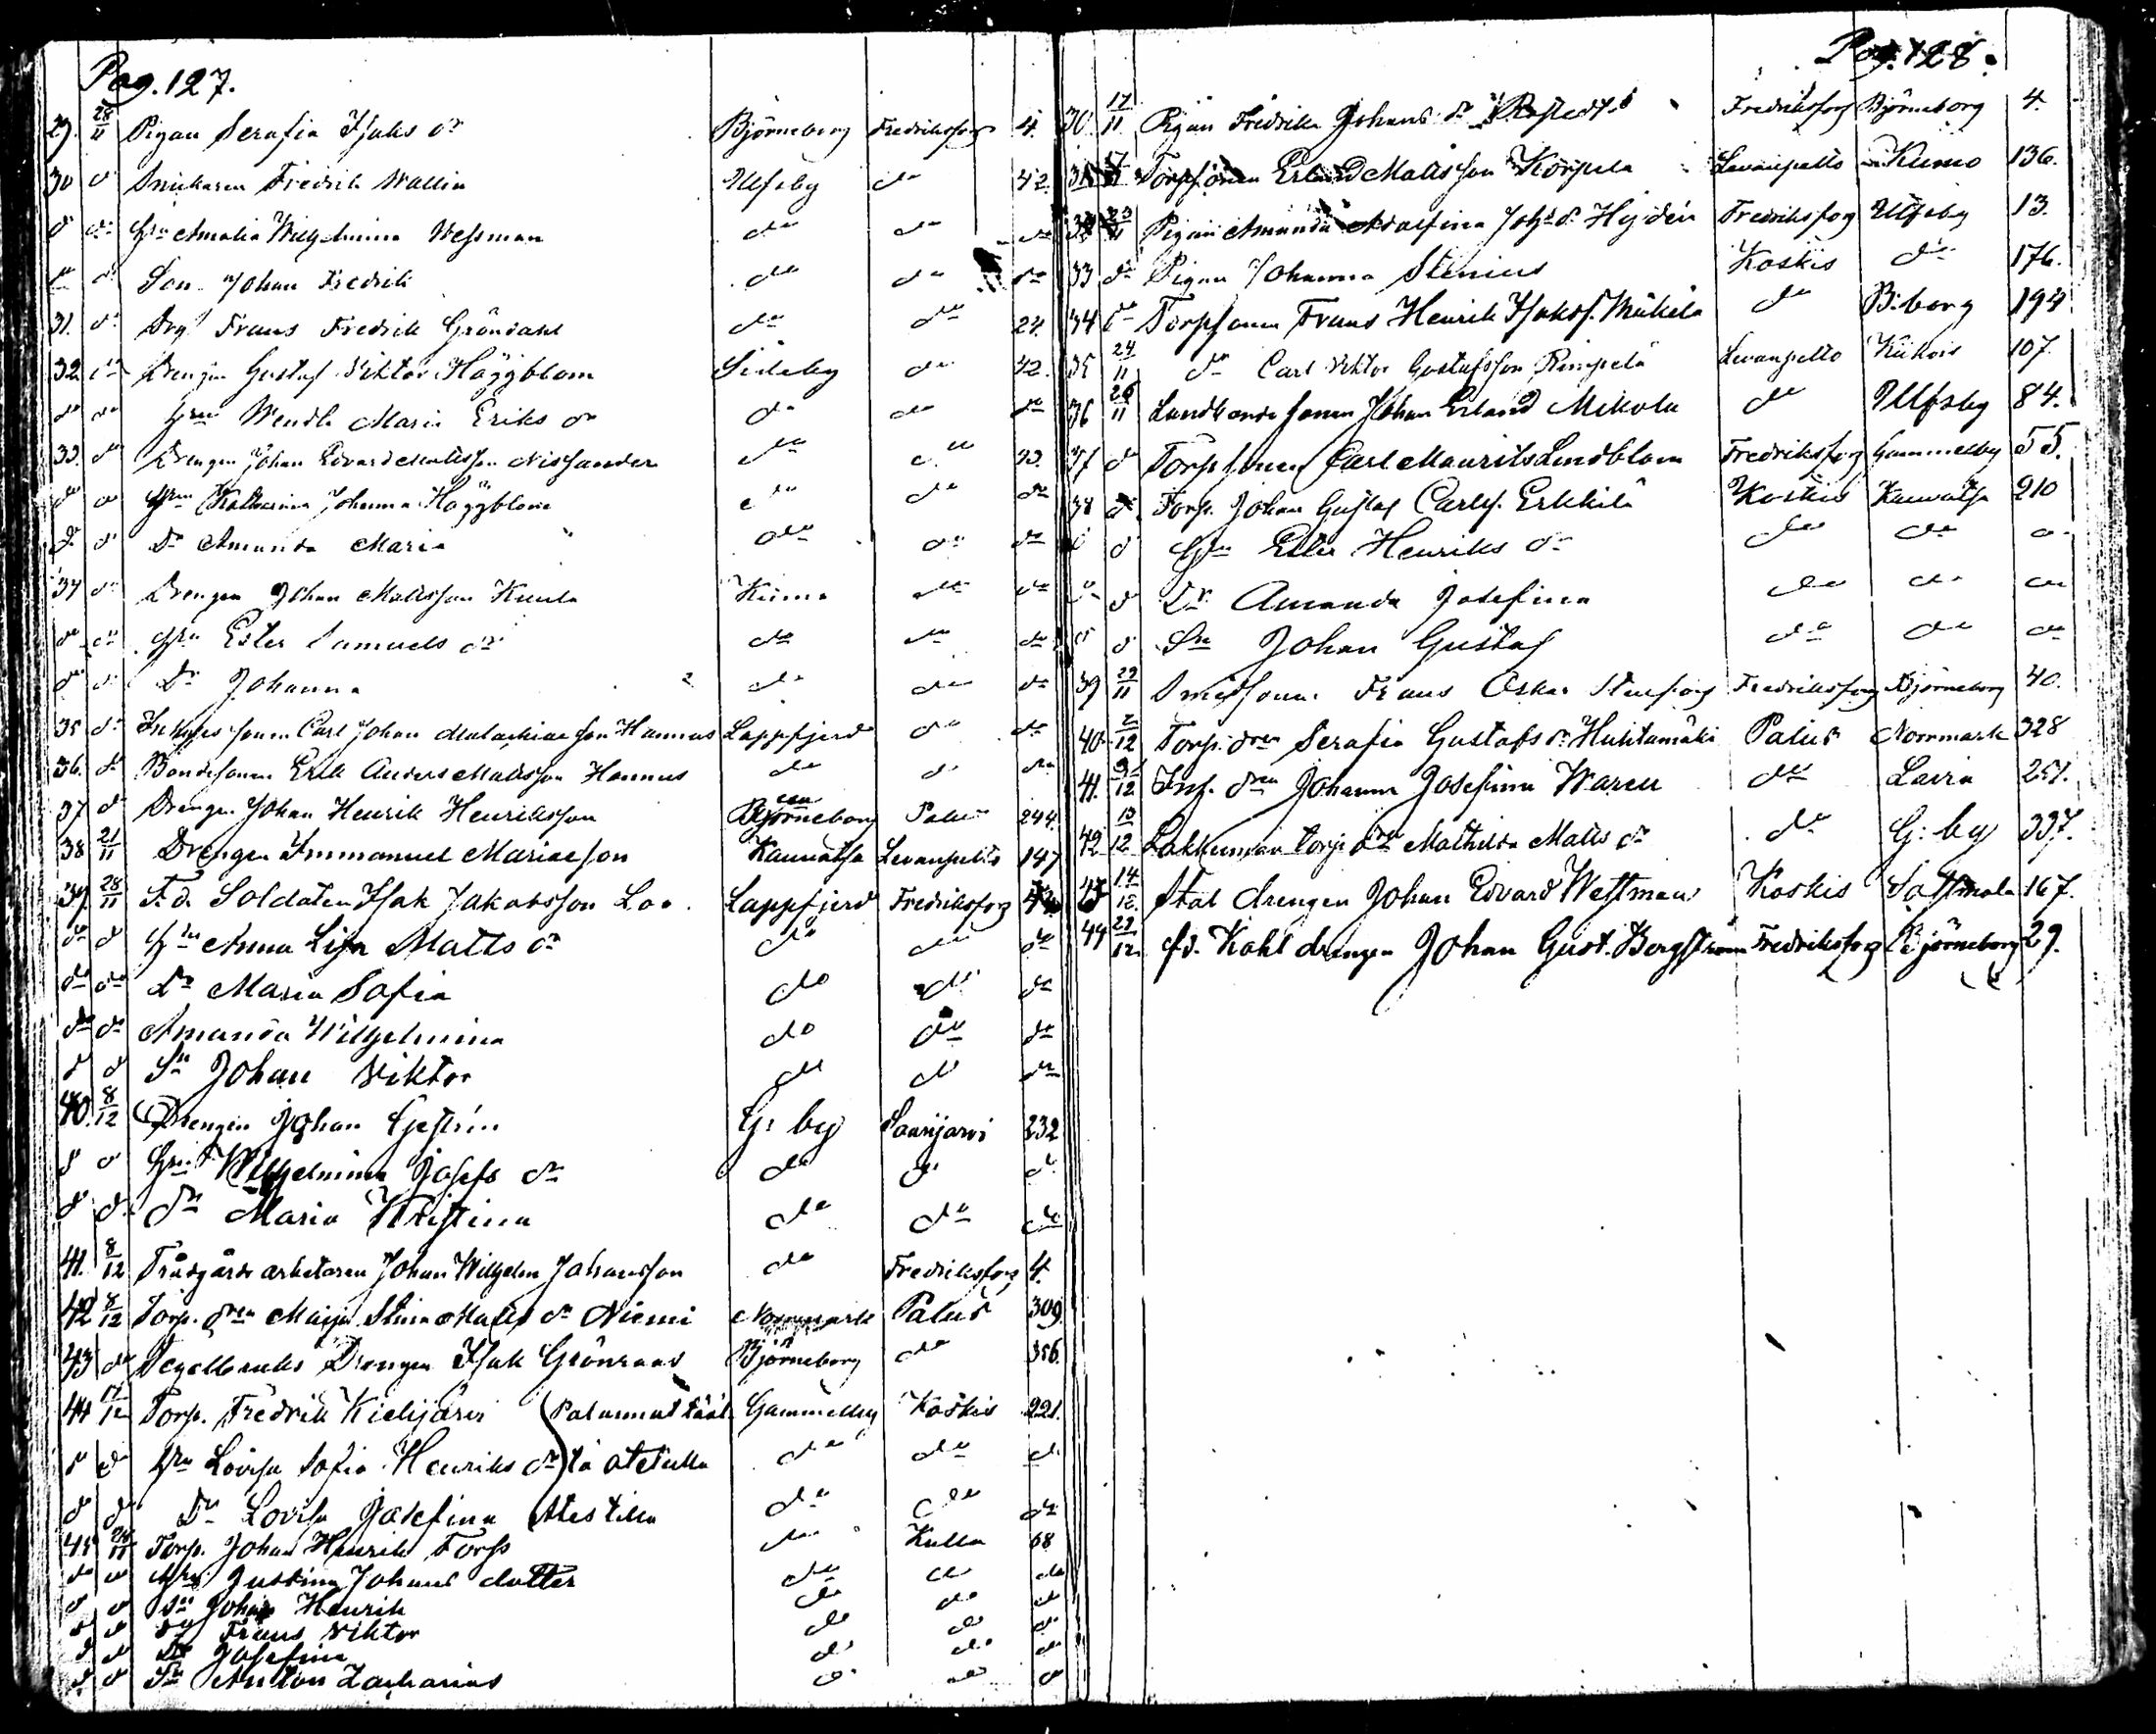 Pag. 127.
29. 28/11 Pigan Serafia Isaks dr Björneborg Fredriksforg 4.
30 do Snickaren Fredrik Wallin Ulfsby do 42.
do do Hru Amalia Wilhelmina Wessman do do do
do do Son Johan Fredrik do do do
31. do Drg Frans Fredrik Gröndahl do do 24.
32. do Drengen Gustaf Viktor Häggblom Sideby do 42.
do do Hru Wendla Maria Eriks dr do do do
33. do Drengen Johan Edvard Mattsson Nissander do do 23.
do do Hru Katharina Johanna Häggblom do do do
do do Dr Amanda Maria do do do
34 do Drengen Johan Mattsson Kuula Kumo do do
do do Hru Ester Samuels dr do do do
do do Dr Johanna do do do
35 do Johan Carl Johan Malachiasson Hannus Lappfjerd do do
36. do Bondesonen Erik Anders Mattsson Hannus do do do
37 do Drengen Johan Henrik Henriksson Björneborg Palus 244.
38 21/11 Drengen Immanuel Mariaeson Kauvatsa Levanpelto 147
39. 28/11 F. d. Soldaten Isak Jakobsson Loo. Lappfjerd Fredriksforg
do do Hru Anna Lisa Matts dr do do do
do do Dr Maria Sofia do do do
do do Amanda Wilhelmina do do do
do do Sn Johan Viktor do do do
40. 8/12 Drengen Johan Gestrin G: by Saarijarvi 232
do do Hru Wilhelmina Josefs dr do do do
do do Dr Maria Kristina do do do
41. 8/12 Trädgårds arbetaren Johan Wilhelm Johansson do Fredriksforg 4.
42 8/12 Torp. dren Maija Stina Matts dr Niemi Norrmark Palus 309.
43 do Tegelbruks Drengen Isak Grönroos Björneborg do 356.
44 17/12 Torp. Fredrik Kielijärvi (Palannut tääl Gammelby Koskis 221.
do do Hru Lovisa Sofia Henriks dr tä otetulla do do do
do do Dr Lovisa Josefina Atestilla do do do
45 24/11 Torp. Johan Henrik Forss do Kulla 68
do do Hru Justina Johans dotter do do do
do do Sn Johan Henrik do do do
do do Sn Frans Viktor do do do
do do Dr Josefina do do do
do do Sn Anton Zacharias do do do
Pag. 128.
30. 17/11 Pigan Fredrika Johans dr Fredriksforg Björneborg 4.
31 17/11 Torpsonen Erland Matsson Korpela Levanpelto Kumo 136.
32 23/11 Pigan Amanda Adolfina Johs dr Hejdén Fredriksforg Ulfsby 13.
33 do Pigan Johanna Stenius Koskis do 176.
34 do Torpsonen Frans Henrik Isakss. Mäkelä do B:borg 194
35 24/11 do Carl Viktor Gustafsson Rimpelä Levanpelto Kiikois 107.
36 26/11 Landbondesonen Johan Erland Mikola do Ulfsby 84.
37 do Torpsonen Carl Maurits Lindblom Fredriksforg Gammelby 55.
38 do Torp. Johan Gustaf Carlss. Erkkilä Koskis Kauvatsa 210
do do Hru Ester Henriks dr do do do
do do Dr Amanda Josefina do do do
do do Sn Johan Gustaf do do do
39 29/11 Smedsonen Frans Oskar Stenforg Fredriksforg Björneborg 40.
40. 2/12 Torp. dren Serafia Gustafs dr Huhtamäki Palus Norrmark 328
41. 9/12 Insp. dren Johanna Josefina Waren do Lavia 251.
42 13/12 Lakkuman torp dr Mathilda Matts dr do G: by 337.
43 14/12 Stal drengen Johan Edvard Westman Koskis Sastmola 167.
44 29/12 fd. Kohl drengen Johan Gust. Bergström Fredriksforg Björneborg 29.